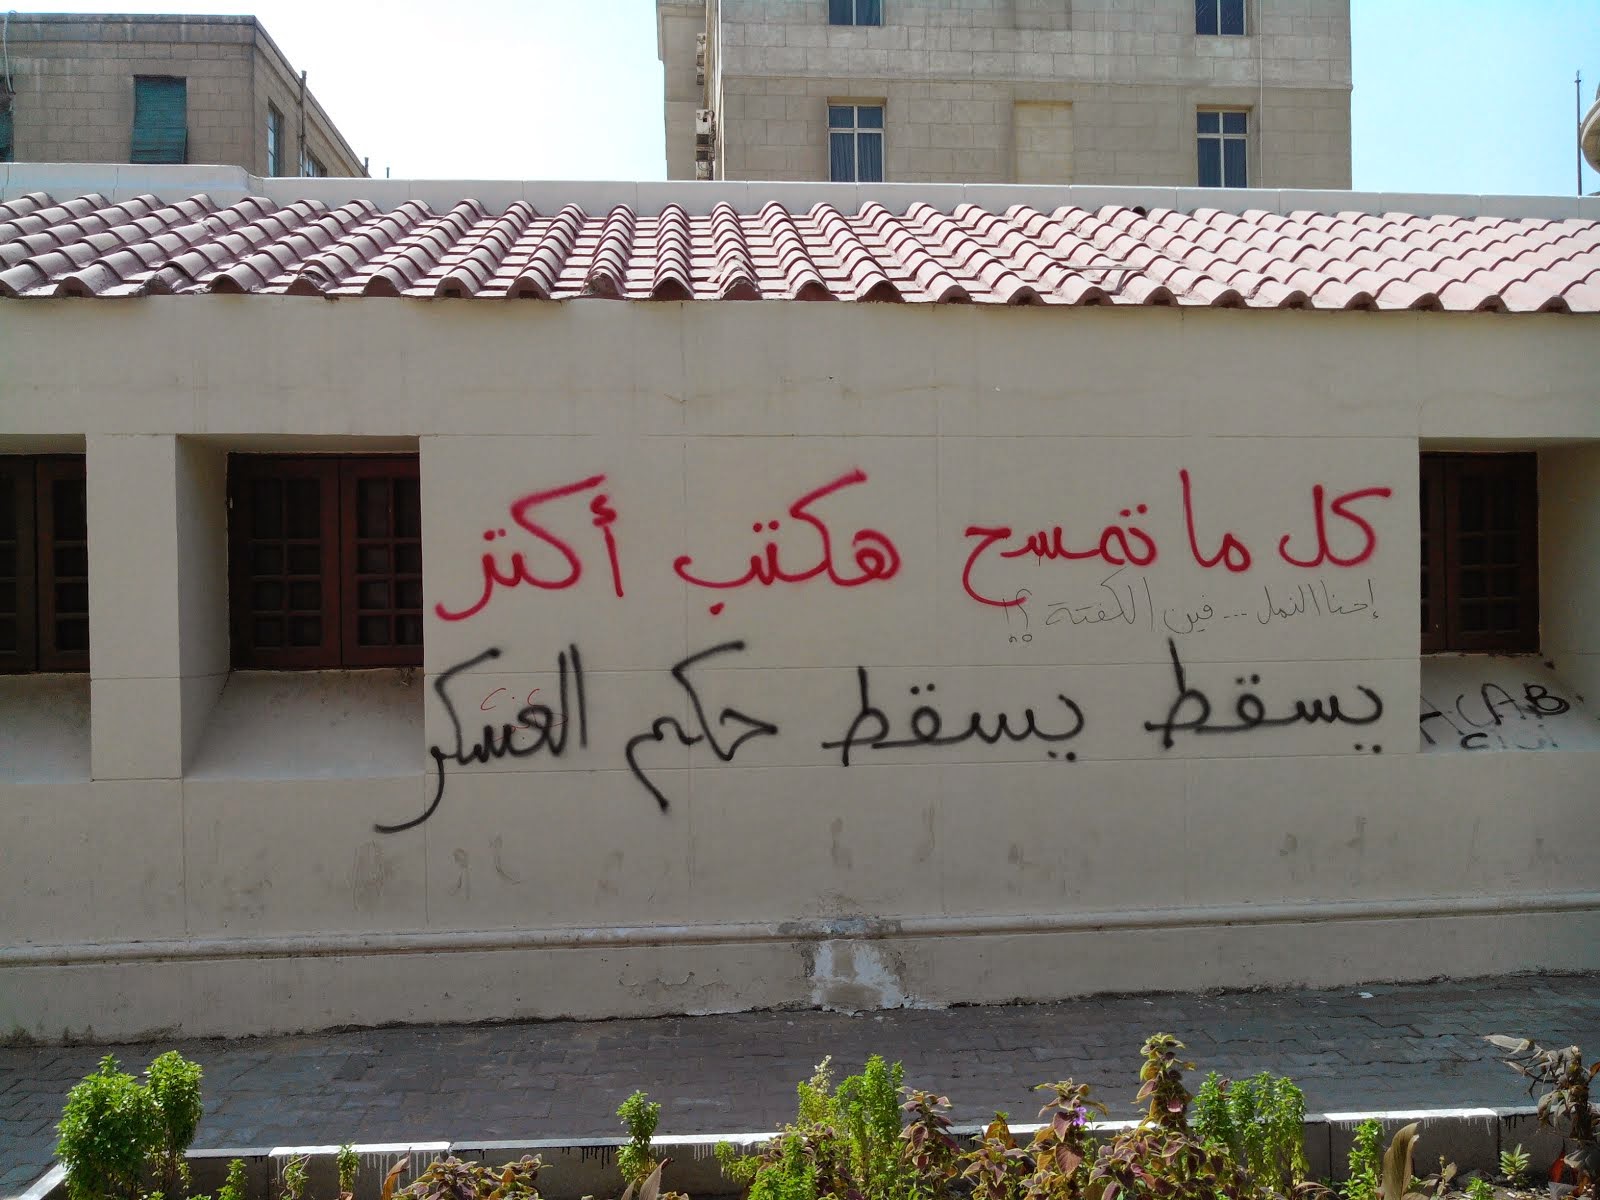 كل ما تمسح هكتب أكتر
إحنا النمل... فين الكفتة ؟!
يسقط يسقط حكم العسكر
ACAB